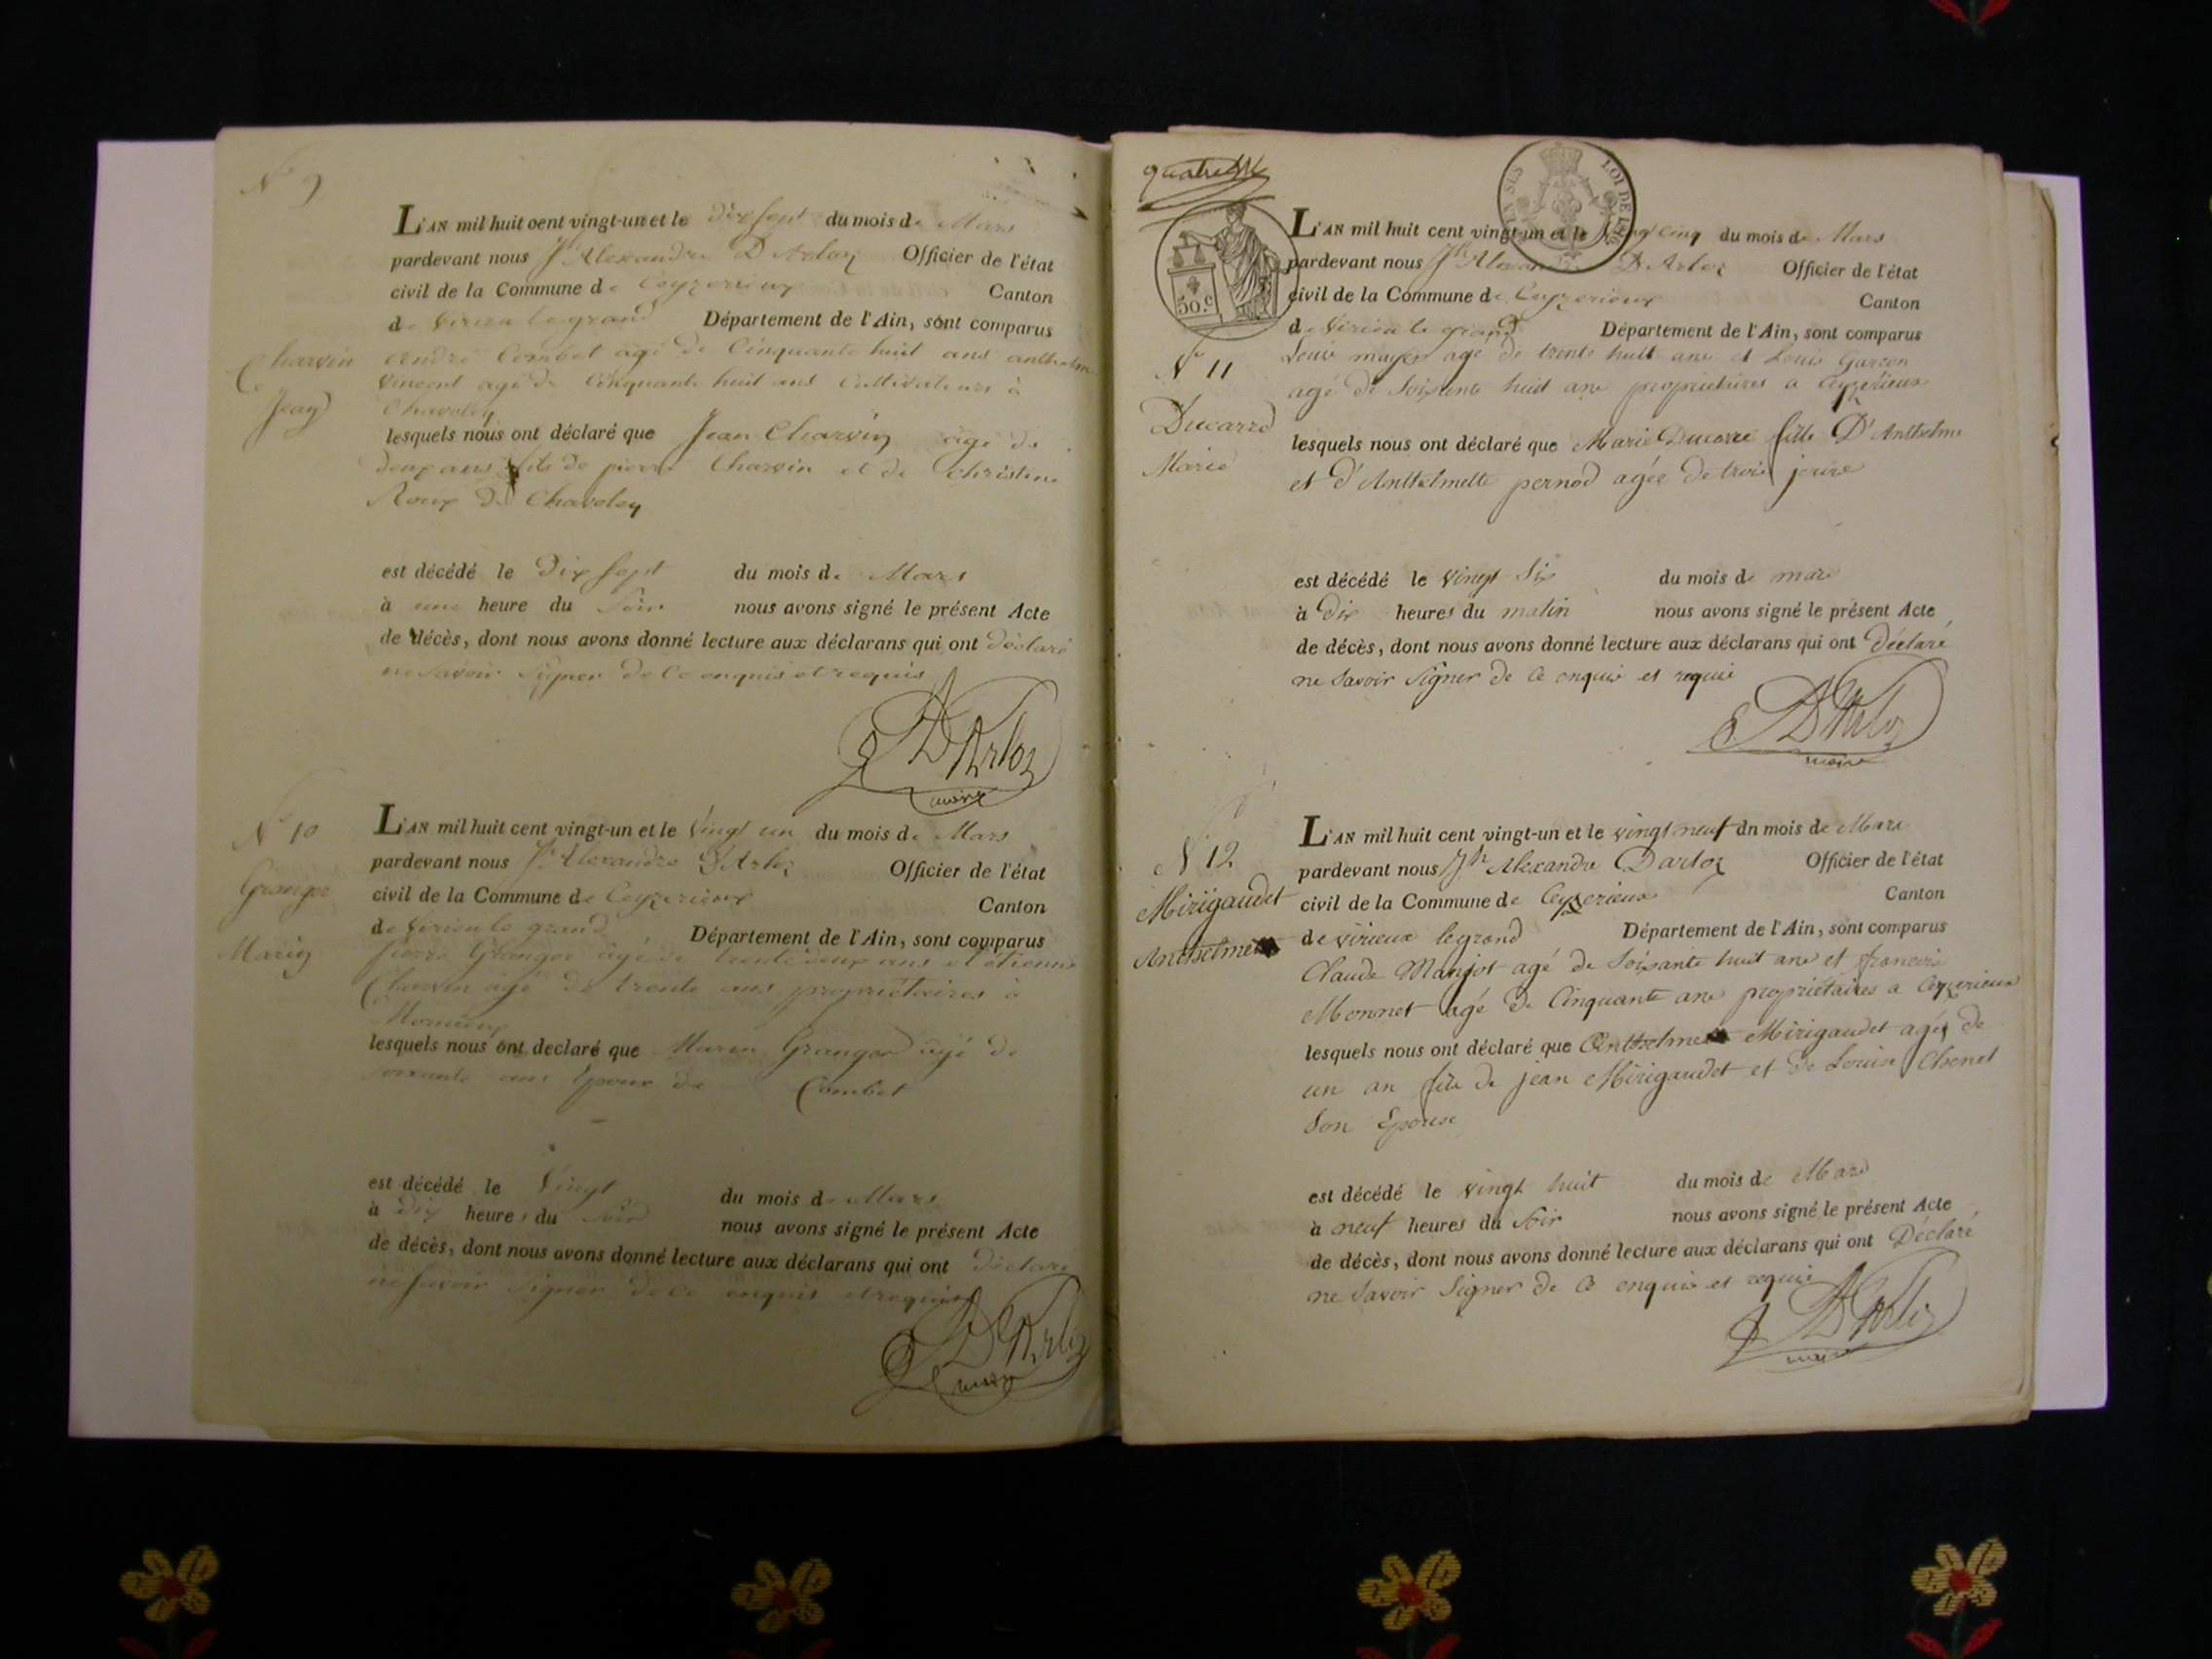 N° 9
L'AN mil huit oent vingt-un et le dix sept du mois de Mars
pardevant nous Jh Alexandre D'Arloz Officier de l'état
civil de la Commune de Ceyzerieux Canton
de Virieu le grand Département de l'Ain, sont comparus
Charvin
Jean
andré Combet agé de Cinquante huit ans anthelme
Vincent agé de Cinquante huit ans Cultivateurs à
Chavoley
lesquels nous ont déclaré que Jean Charvin agé de
deux ans fils de pierre Charvin et de Christine
Roux de Chavoley
est décédé le Dix Sept du mois de Mars
à une heure du Soir nous avons signé le présent Acte
de décès, dont nous avons donné lecture aux déclarans qui ont déclaré
ne Savoir Signer de Ce enquis et requis
D'Arloz
maire
N° 10
Granger
Marin
L'AN mil huit cent vingt-un et le Vingt un du mois de Mars
pardevant nous Jh Alexandre D'Arloz Officier de l'état
civil de la Commune de Ceyzerieux Canton
de Virieu le grand Département de l'Ain, sont comparus
pierre Granger agé de trente deux ans et étienne
Charvin agé de trente ans propriétaires à
lesquels nous ont declaré que Marin Granger agé de
soixante ans Epoux de Combet
est décédé le Vingt du mois de Mars
à dix heures du soir nous avons signé le présent Acte
de décès, dont nous avons donné lecture aux déclarans qui ont déclaré
ne Savoir Signer de Ce enquis et requis
D'Arloz
maire
LOI DE
50.c
L'AN mil huit cent vingt-un et le Vingt Cinq du mois de Mars
pardevant nous Jh Alexandre D'Arloz Officier de l'état
civil de la Commune de Ceyzerieux Canton
de Virieu le grand Département de l'Ain, sont comparus
N° 11
Ducarre
Marie
Louis mayer agé de trente huit ans et Louis Garcon
agé de Soixante huit ans propriétaires a Ceyzerieux
lesquels nous ont déclaré que Marie Ducarre fille D'Anthelme
et d'Anthelmette pernod agée de trois jours
est décédé le Vingt Six du mois de mars
à Dix heures du matin nous avons signé le présent Acte
de décès, dont nous avons donné lecture aux déclarans qui ont Déclaré
ne Savoir Signer de Ce enquis et requis
D'Arloz
maire
N° 12
Mirigaudet
Anthelme
L'AN mil huit cent vingt-un et le vingt neuf dn mois de Mars
pardevant nous Jh Alexandre Darloz Officier de l'état
civil de la Commune de Ceyzerieux Canton
de virieux legrand Département de l'Ain, sont comparus
Claude Manjot agé de Soixante huit ans et francois
Monnet agé de Cinquante ans propriétaires a Ceyzerieux
lesquels nous ont déclaré que Anthelme Mirigaudet agé de
un an fils de jean Mirigaudet et de Louise Chenet
Son Epouse
est décédé le vingt huit du mois de Mars
à neuf heures du Soir nous avons signé le présent Acte
de décès, dont nous avons donné lecture aux déclarans qui ont Déclaré
ne Savoir Signer de Ce enquis et requis
D'Arloz
maire